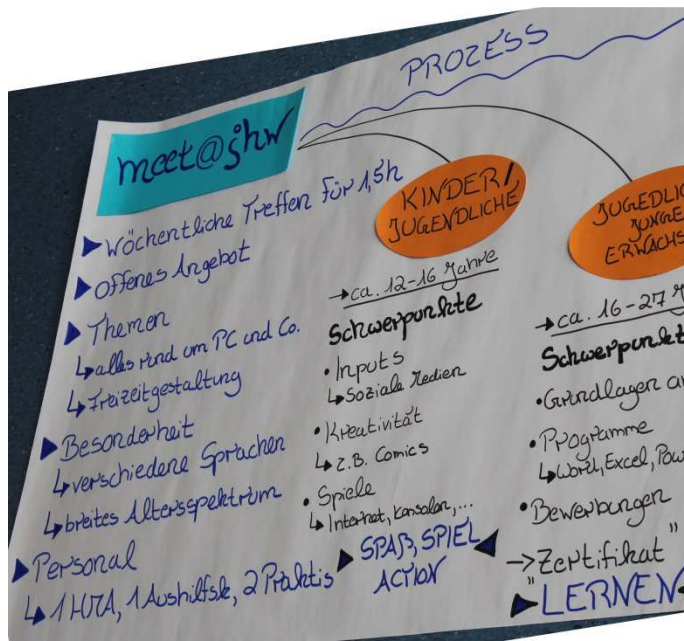 PROZESS
meet@jhw
▶ wöchentliche Treffen für 1,5h
▶ offenes Angebot
▶ Themen
↳ alles rund um PC und Co.
↳ Freizeitgestaltung
▶ Besonderheit
↳ verschiedene Sprachen
↳ breites Altersspektrum
▶ Personal
↳ 1 HMA, 1 Aushilfsk, 2 Praktis
KINDER/
JUGENDLICHE
→ ca. 12-16 Jahre
Schwerpunkte
• Inputs
↳ Soziale Medien
• Kreativität
↳ z.B. Comics
• Spiele
↳ Internet, Konsolen,...
▶ SPAß, SPIEL ◀
ACTION
JUGEDLIC
JUNGE
ERWACHS
→ ca. 16-27 J
Schwerpunkt
• Grundlagen a
• Programme
↳ Word, Excel, Pow
• Bewerbungen
→ "Zertifikat"
▶ LERNEN